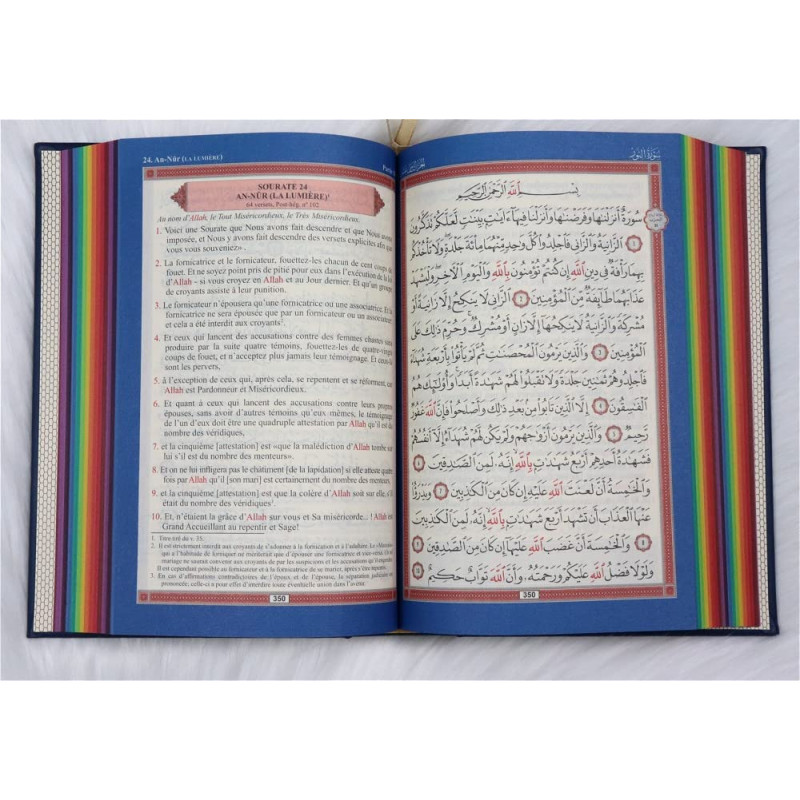 24. An-Nûr (LA LUMIÈRE)
SOURATE 24
AN-NÛR (LA LUMIÈRE)¹
64 versets, Post-hég. n° 102
Au nom d'Allah, le Tout Miséricordieux, le Très Miséricordieux.
1. Voici une Sourate que Nous avons fait descendre et que Nous avons
imposée, et Nous y avons fait descendre des versets explicites afin que
vous vous souveniez».
2. La fornicatrice et le fornicateur, fouettez-les chacun de cent coups de
fouet. Et ne soyez point pris de pitié pour eux dans l'exécution de la loi
d'Allah – si vous croyez en Allah et au Jour dernier. Et qu'un groupe
de croyants assiste à leur punition.
3. Le fornicateur n'épousera qu'une fornicatrice ou une associatrice. Et la
fornicatrice ne sera épousée que par un fornicateur ou un associateur;
et cela a été interdit aux croyants².
4. Et ceux qui lancent des accusations contre des femmes chastes sans
produire par la suite quatre témoins, fouettez-les de quatre-vingts
coups de fouet, et n'acceptez plus jamais leur témoignage. Et ceux-là
sont les pervers,
5. à l'exception de ceux qui, après cela, se repentent et se réforment, car
Allah est Pardonneur et Miséricordieux.
6. Et quant à ceux qui lancent des accusations contre leurs propres
épouses, sans avoir d'autres témoins qu'eux mêmes, le témoignage
de l'un d'eux doit être une quadruple attestation par Allah qu'il est du
nombre des véridiques,
7. et la cinquième [attestation] est «que la malédiction d'Allah tombe sur
lui s'il est du nombre des menteurs».
8. Et on ne lui infligera pas le châtiment [de la lapidation] si elle atteste quatre
fois par Allah qu'il [son mari] est certainement du nombre des menteurs,
9. et la cinquième [attestation] est que la colère d'Allah soit sur elle, s'il
était du nombre des véridiques.
10. Et, n'étaient la grâce d'Allah sur vous et Sa miséricorde...! Allah est
Grand Accueillant au repentir et Sage!
1. Titre tiré du v. 35.
2. Il est strictement interdit aux croyants de s'adonner à la fornication et à l'adultère. Le
qui a l'habitude de forniquer ne mériterait que d'épouser une fornicatrice et vice-versa. Un
mariage ne saurait convenir aux croyants
Il est cependant possible au fornicateur et à la fornicatrice de se marier, après s'être repentis.
3. En cas d'affirmations contradictoires de l'époux et de l'épouse, la séparation judiciaire est
prononcée; celle-ci a pour effet d'interdire toute éventuelle union dans l'avenir.
350
سورة النور
بِسْمِ اللَّهِ الرَّحْمَنِ الرَّحِيمِ
سُورَةٌ أَنزَلْنَاهَا وَفَرَضْنَاهَا وَأَنزَلْنَا فِيهَا آيَاتٍ بَيِّنَاتٍ لَّعَلَّكُمْ تَذَكَّرُونَ
١ الزَّانِيَةُ وَالزَّانِي فَاجْلِدُوا كُلَّ وَاحِدٍ مِّنْهُمَا مِائَةَ جَلْدَةٍ وَلَا تَأْخُذْكُم
بِهِمَا رَأْفَةٌ فِي دِينِ اللَّهِ إِن كُنتُمْ تُؤْمِنُونَ بِاللَّهِ وَالْيَوْمِ الْآخِرِ وَلْيَشْهَدْ
عَذَابَهُمَا طَائِفَةٌ مِّنَ الْمُؤْمِنِينَ ٢ الزَّانِي لَا يَنكِحُ إِلَّا زَانِيَةً أَوْ
مُشْرِكَةً وَالزَّانِيَةُ لَا يَنكِحُهَا إِلَّا زَانٍ أَوْ مُشْرِكٌ وَحُرِّمَ ذَلِكَ عَلَى
الْمُؤْمِنِينَ ٣ وَالَّذِينَ يَرْمُونَ الْمُحْصَنَاتِ ثُمَّ لَمْ يَأْتُوا بِأَرْبَعَةِ شُهَدَاءَ
فَاجْلِدُوهُمْ ثَمَانِينَ جَلْدَةً وَلَا تَقْبَلُوا لَهُمْ شَهَادَةً أَبَدًا وَأُولَئِكَ هُمُ
الْفَاسِقُونَ ٤ إِلَّا الَّذِينَ تَابُوا مِن بَعْدِ ذَلِكَ وَأَصْلَحُوا فَإِنَّ اللَّهَ غَفُورٌ
رَّحِيمٌ ٥ وَالَّذِينَ يَرْمُونَ أَزْوَاجَهُمْ وَلَمْ يَكُن لَّهُمْ شُهَدَاءُ إِلَّا أَنفُسُهُمْ
فَشَهَادَةُ أَحَدِهِمْ أَرْبَعُ شَهَادَاتٍ بِاللَّهِ إِنَّهُ لَمِنَ الصَّادِقِينَ ٦
وَالْخَامِسَةُ أَنَّ لَعْنَتَ اللَّهِ عَلَيْهِ إِن كَانَ مِنَ الْكَاذِبِينَ ٧ وَيَدْرَؤُا
عَنْهَا الْعَذَابَ أَن تَشْهَدَ أَرْبَعَ شَهَادَاتٍ بِاللَّهِ إِنَّهُ لَمِنَ الْكَاذِبِينَ
٨ وَالْخَامِسَةَ أَنَّ غَضَبَ اللَّهِ عَلَيْهَا إِن كَانَ مِنَ الصَّادِقِينَ ٩
وَلَوْلَا فَضْلُ اللَّهِ عَلَيْكُمْ وَرَحْمَتُهُ وَأَنَّ اللَّهَ تَوَّابٌ حَكِيمٌ ١٠
350